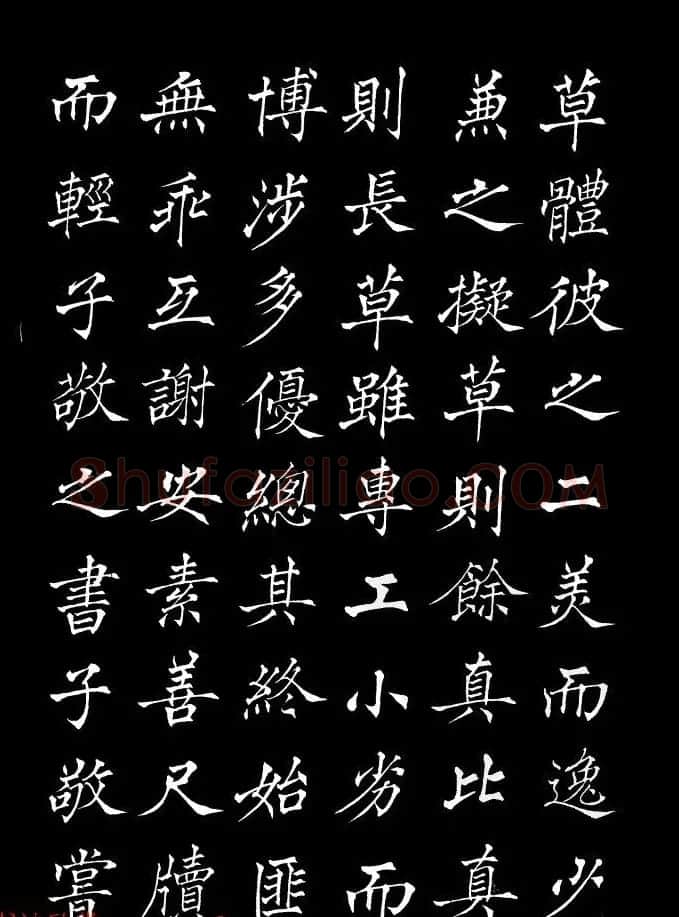 草體彼之二美而逸少
兼之擬草則餘真比真
則長草雖專工小劣而
博涉多優總其終始匪
無乖互謝安素善尺牘
而輕子敬之書子敬嘗
Shufaziliao.COM